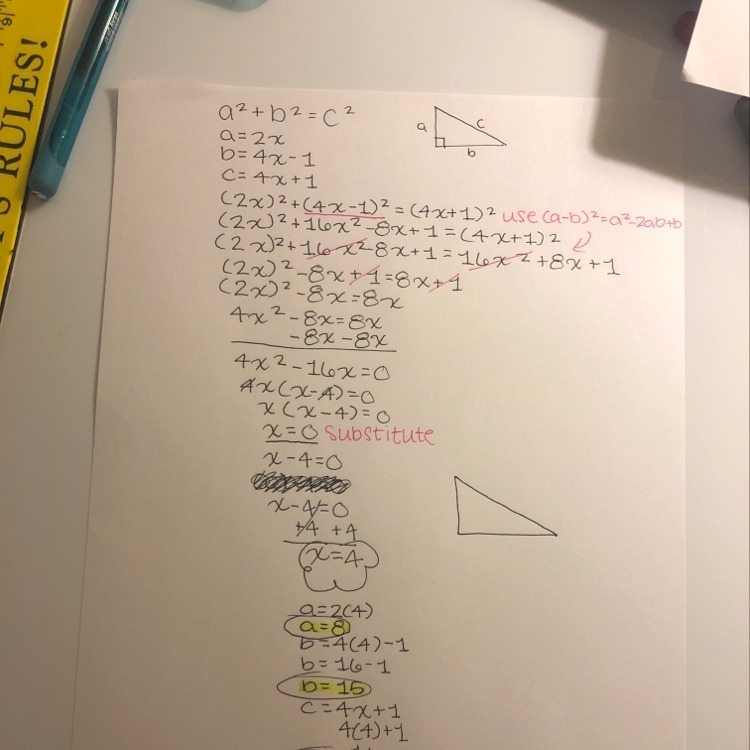 RULES!
a² + b² = c²
a = 2x
b = 4x - 1
c = 4x + 1
a
c
b
(2x)² + (4x-1)² = (4x+1)² use (a-b)² = a² - 2ab + b
(2x)² + 16x² - 8x + 1 = (4x+1)²
(2x)² + 16x² - 8x + 1 = 16x² + 8x + 1
(2x)² - 8x + 1 = 8x + 1
(2x)² - 8x = 8x
4x² - 8x = 8x
-8x - 8x
4x² - 16x = 0
4x(x-4) = 0
x(x-4) = 0
x = 0 substitute
x - 4 = 0
x - 4 = 0
+4 +4
x = 4
a = 2(4)
a = 8
b = 4(4) - 1
b = 16 - 1
b = 15
c = 4x + 1
4(4) + 1